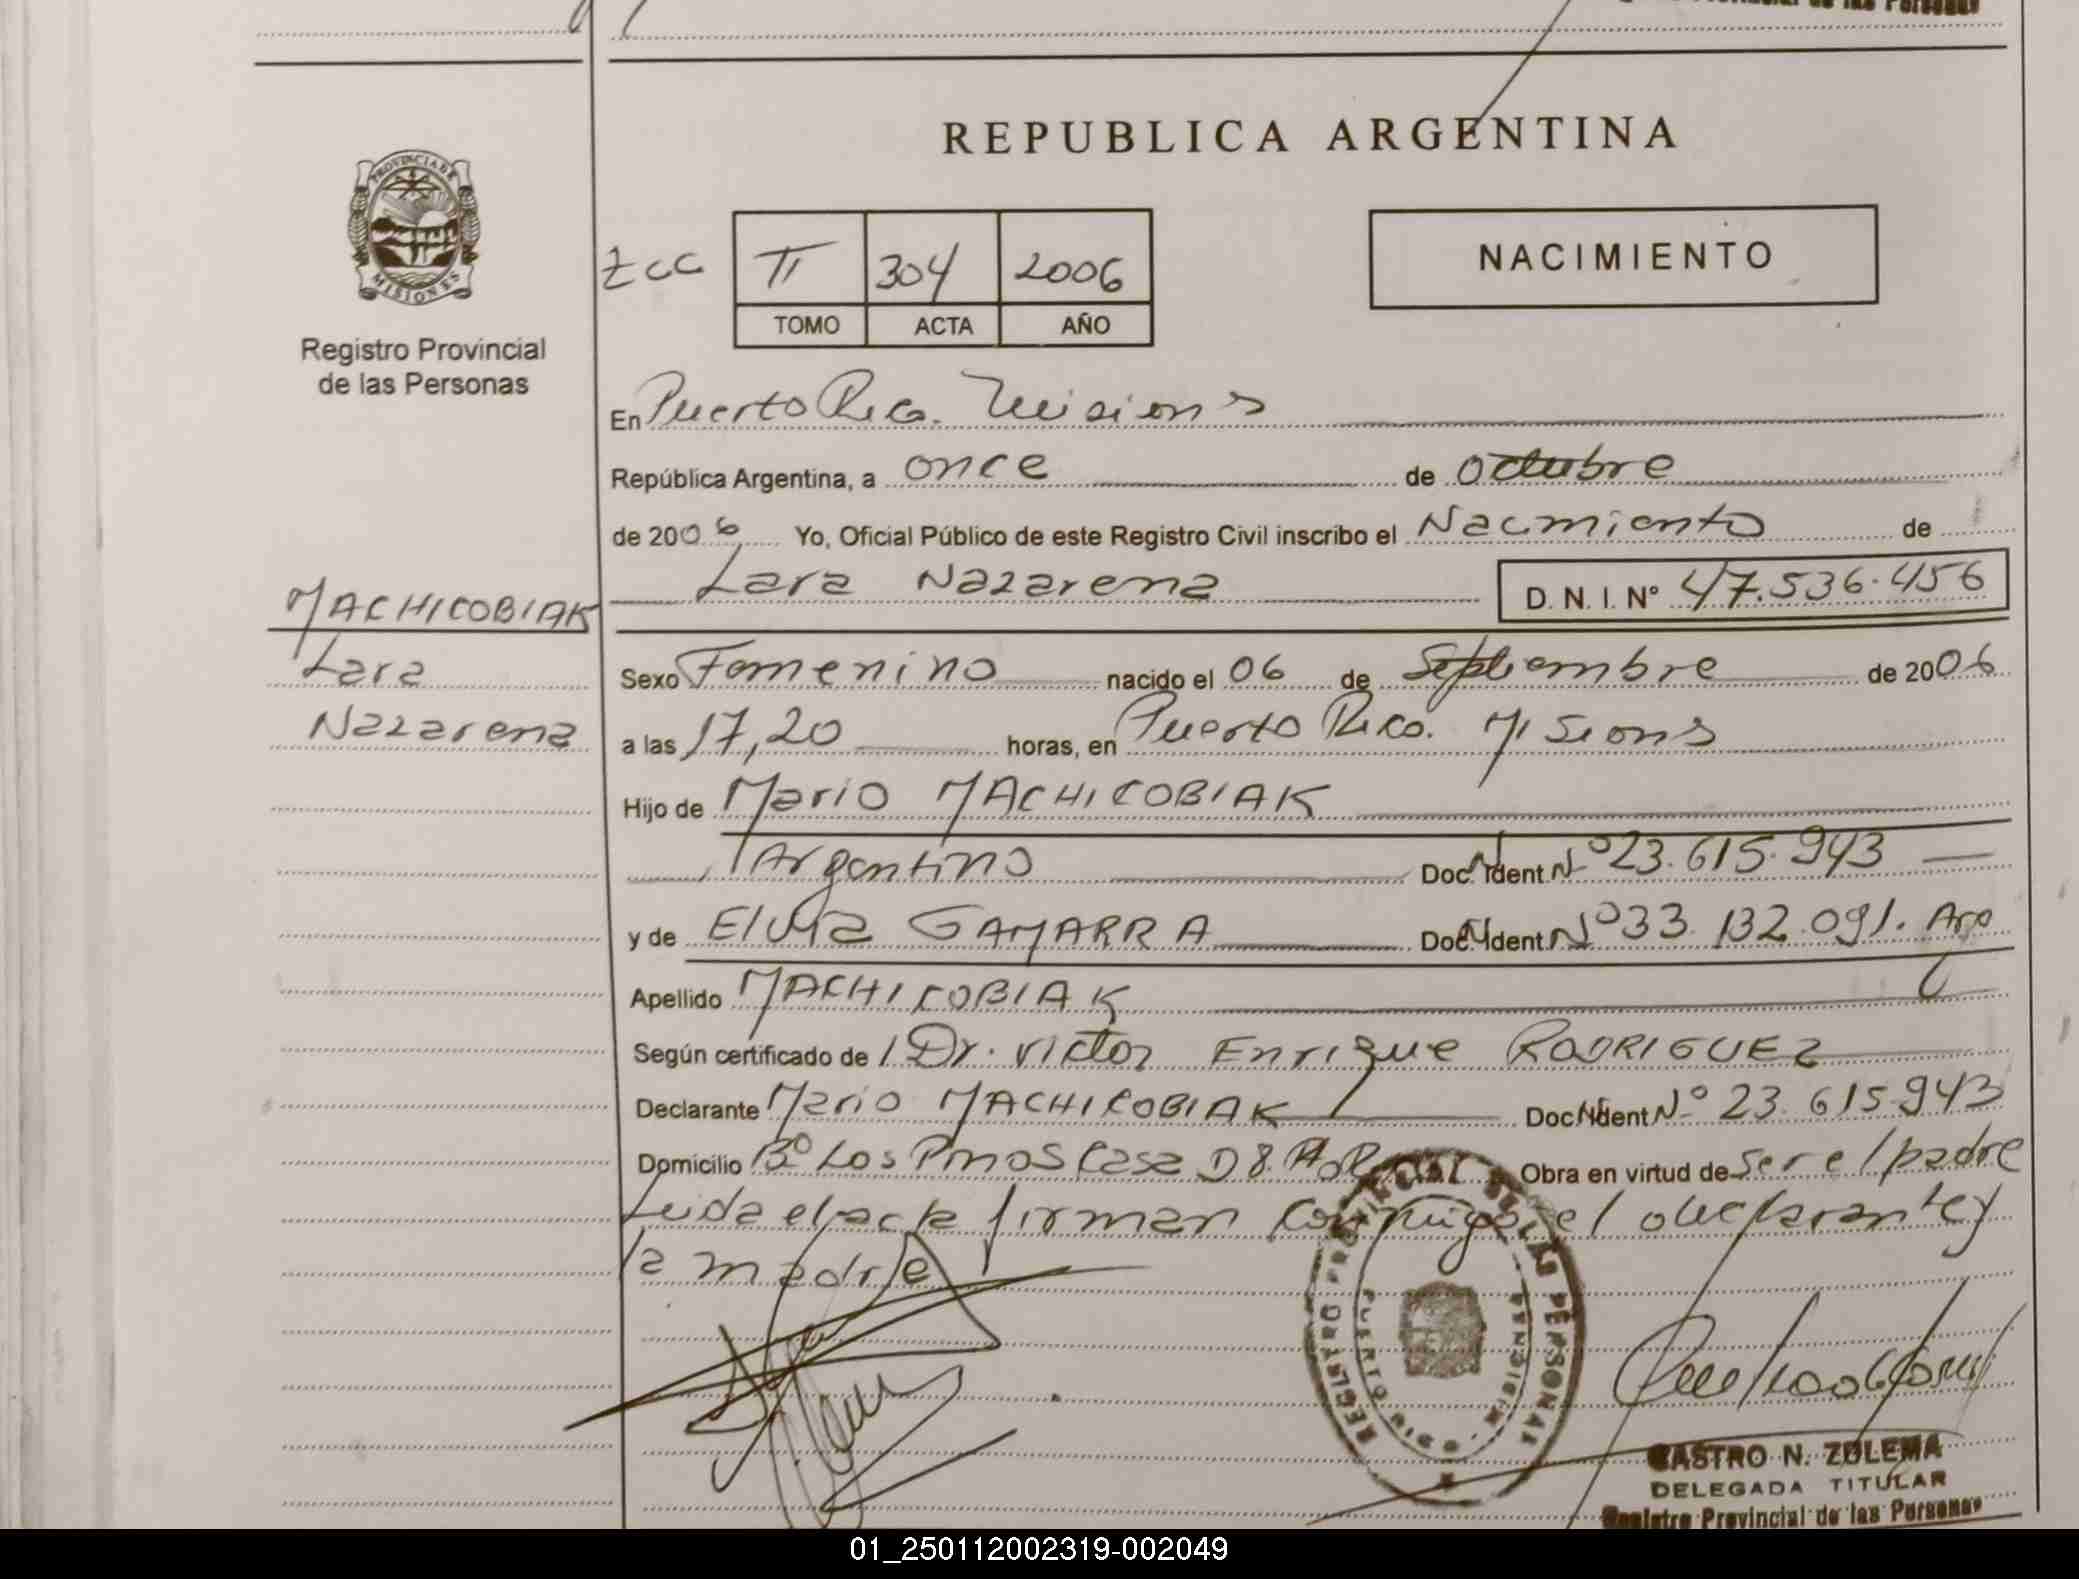 de las Personas
REPUBLICA ARGENTINA
PROVINCIA DE
MISIONES
Registro Provincial
de las Personas
II 304 2006
TOMO ACTA AÑO
NACIMIENTO
En Puerto Rico. Misiones
República Argentina, a once de octubre
de 2006 Yo, Oficial Público de este Registro Civil inscribo el Nacimiento de
Lara Nazarena D. N. I. N° 47.536.456
MACHICOBIAK
Lara
Nazarena
Sexo Femenino nacido el 06 de Septiembre de 2006
a las 17,20 horas, en Puerto Rico. Misiones
Hijo de Mario MACHICOBIAK
Argentino Doc. Ident. N° 23.615.943
y de Elvia GAMARRA Doc. Ident. N° 33.132.091. Arg
Apellido MACHICOBIAK
Según certificado de Dr. Victor Enrique RODRIGUEZ
Declarante Mario MACHICOBIAK Doc. Ident. N° 23.615.943
Domicilio B° Los Pinos Casa D 8. Obra en virtud de ser el padre
Leida el acta firman conmigo el declarante y
la madre
REGISTRO PROVINCIAL DE LAS PERSONAS
PUERTO RICO MISIONES
CASTRO N. ZULEMA
DELEGADA TITULAR
Registro Provincial de las Personas
01_250112002319-002049